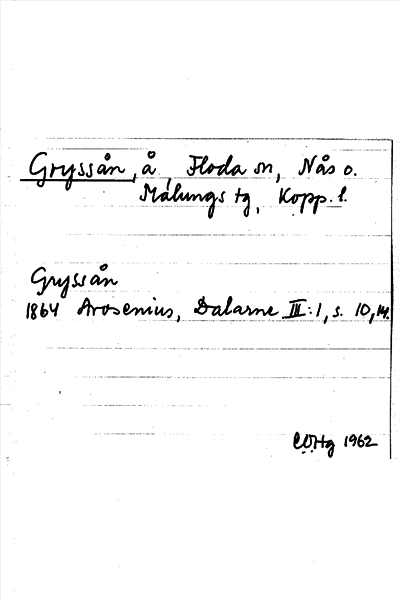 Gryssån, å, Floda sn, Nås o.
Malungs tg, Kopp. l.
Gryssån
1864 Arosenius, Dalarne III:1, s. 10, 14.
CÖHg 1962